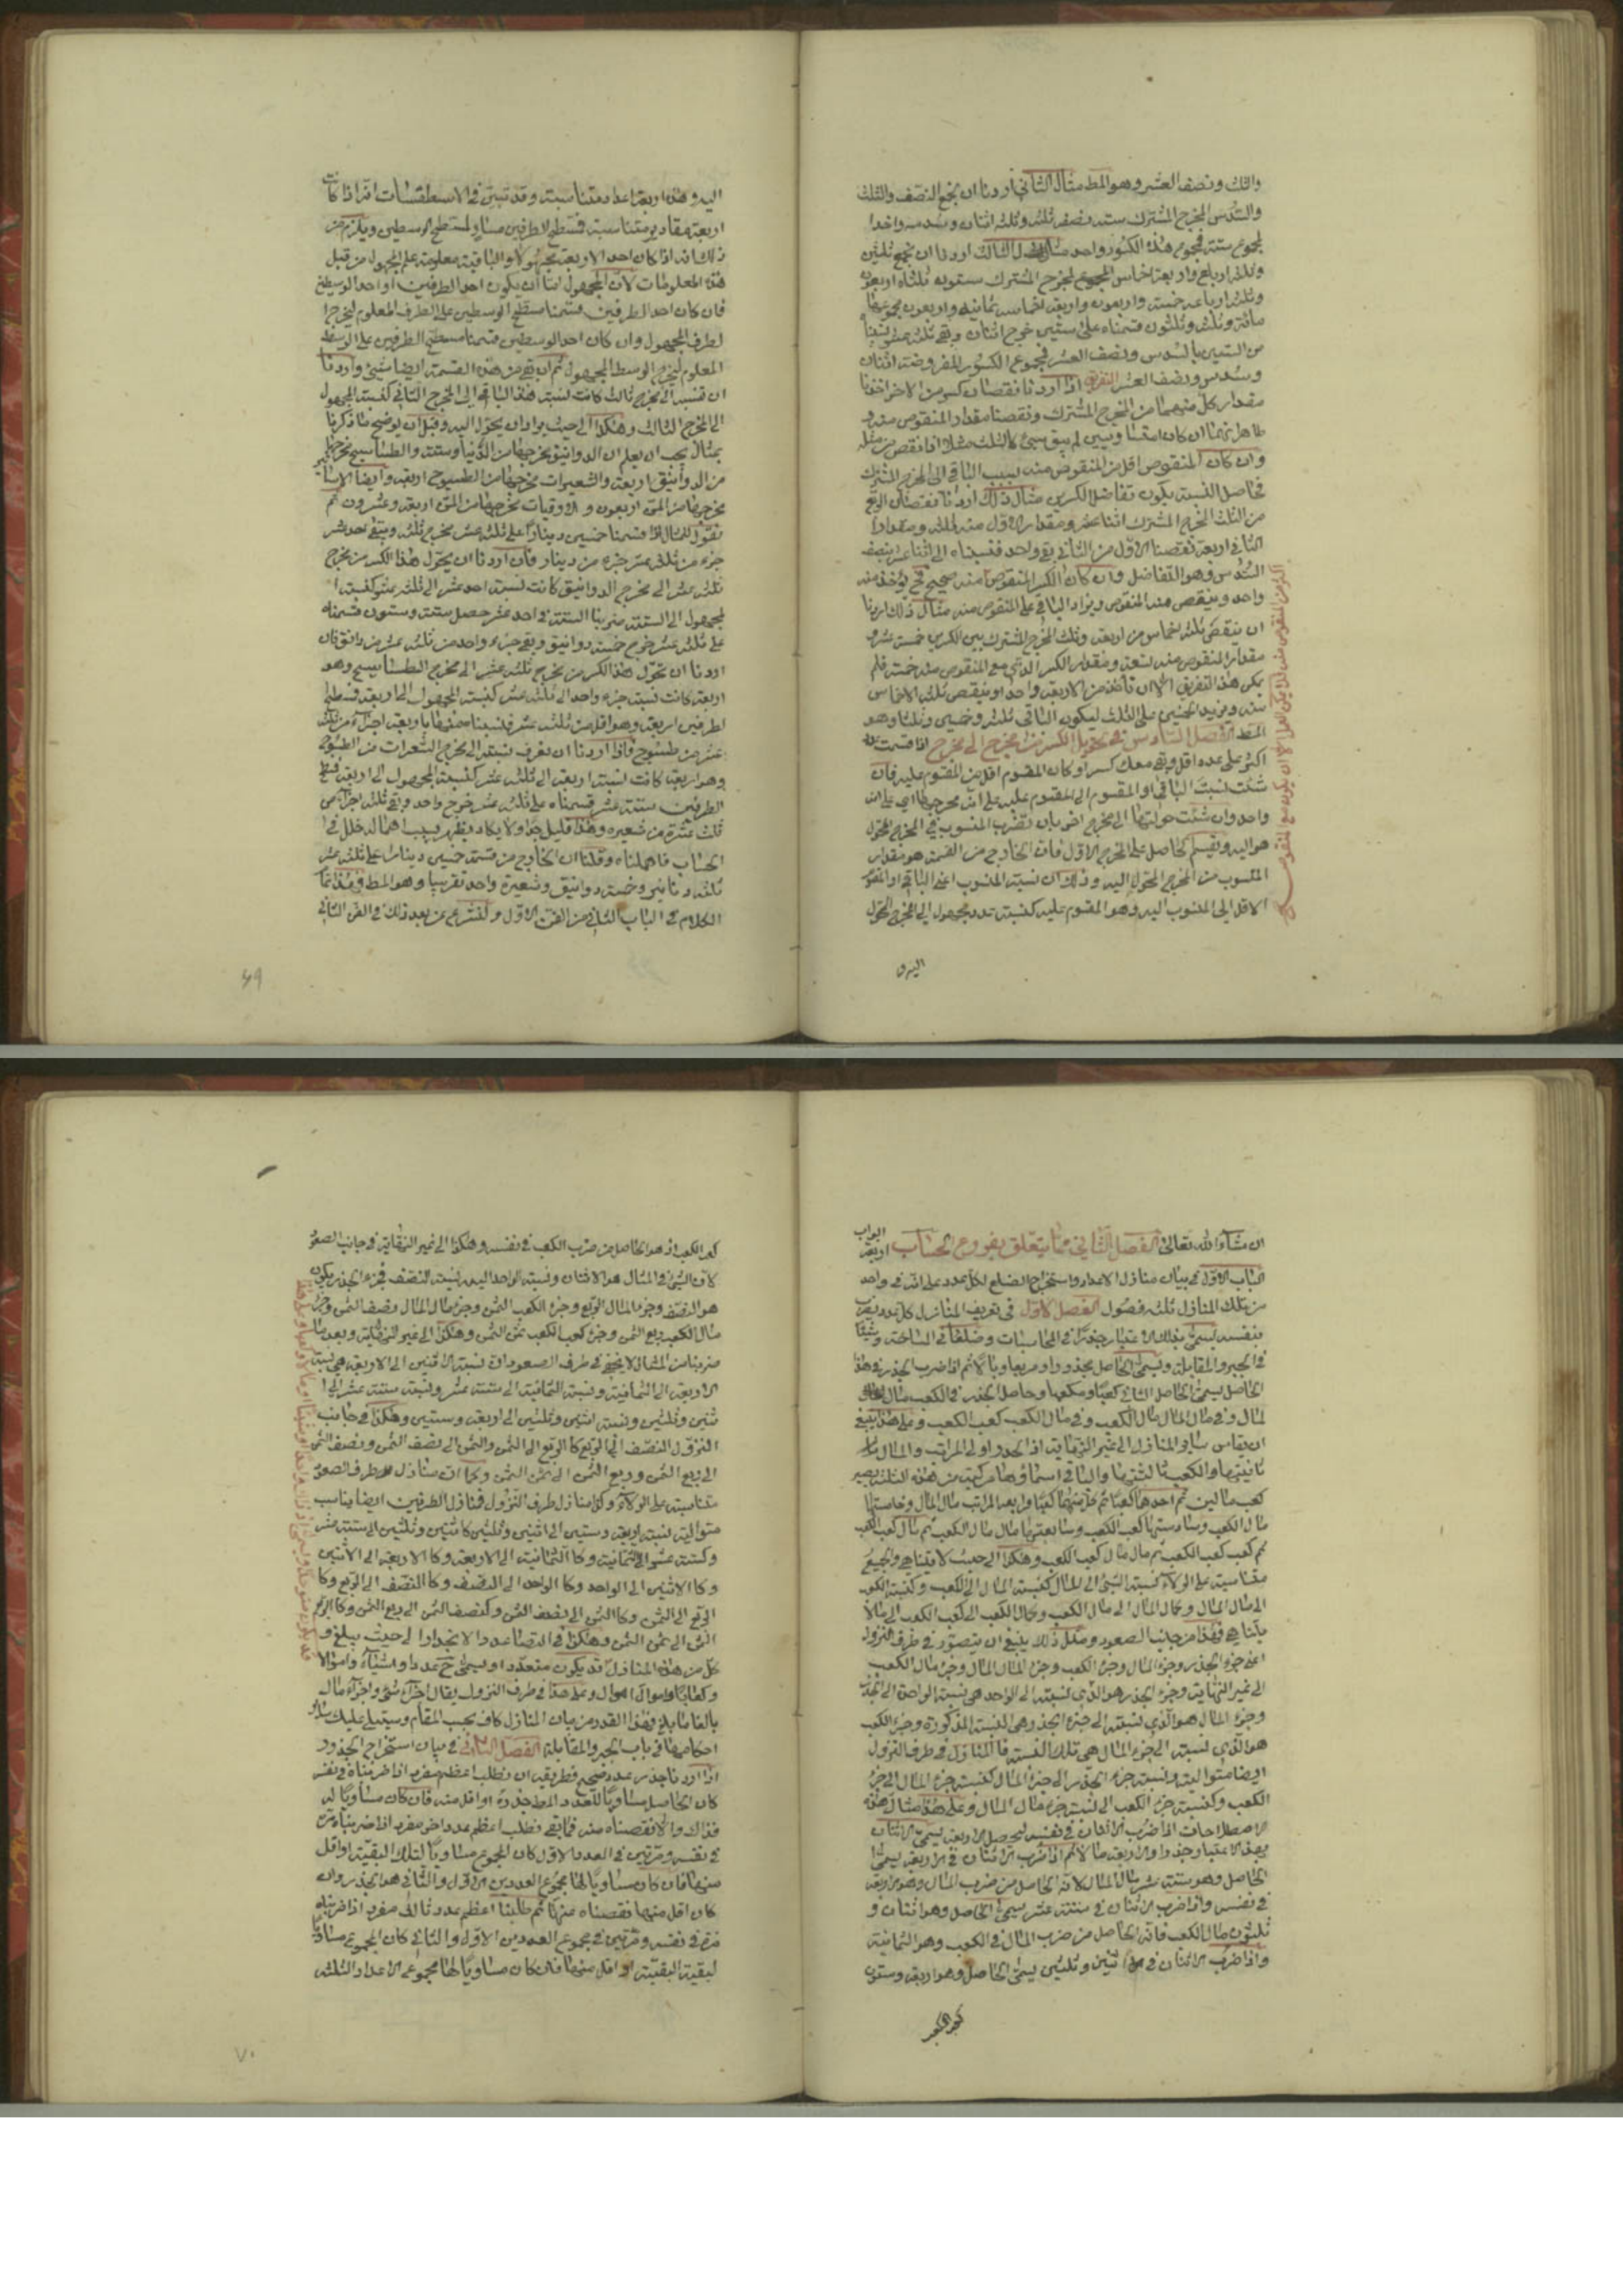 والثلث ونصف العشر وهو المط مثال الثاني اردنا ان نجمع النصف والثلث
والسدس المخرج المشترك ستة ونصفه ثلثة وثلثه اثنان وسدسه واحد
لمجموع ستة فمجموع هذه الكسور واحد مثال الثالث اردنا ان نجمع ثلثين
وثلثة ارباع واربعة اخماس المخرج المشترك ستون ثلثاه اربعون
وثلثة ارباعه خمسة واربعون واربعة اخماسه ثمانية واربعون مجموعها
مائة وثلث وثلثون قسمناه على ستين خرج اثنان وبقي ثلثة عشر
من الستين بالسدس ونصف العشر فمجموع الكسور المفروضة اثنان
وسدس ونصف العشر التفريق اذا اردنا نقصان كسر من الاخر اخذنا
مقدار كل منهما من المخرج المشترك ونقصنا مقدار المنقوص منه و
ظاهر انهما ان كانا متساويين لم يبق شيء كالثلث مثلا اذا نقص من مثله
وان كان المنقوص اقل من المنقوص منه نسب الباقي الى المخرج المشترك
فحاصل النسبة يكون تفاضل الكسرين مثال ذلك اردنا نقصان الربع
من الثلث المخرج المشترك اثنا عشر ومقدار الاول منه ثلثة ومقدار
الثاني اربعة نقصنا الاول من الثاني بقي واحد فنسبناه الى اثنا عشر بنصف
السدس وهو التفاضل وان كان الكسر المنقوص منه صحيح فح يؤخذ منه
واحد وينقص منه المنقوص ويزاد الباقي على المنقوص منه مثال ذلك اردنا
ان ينقص ثلثة اخماس من اربعة وثلث المخرج المشترك بين الكسرين خمسة عشر و
مقدار المنقوص منه تسعة ومقدار الكسر الذي مع المنقوص منه خمسة فلم
يكن هذا التفريق الا ان نأخذ من الاربعة واحدا وينقص ثلثة الاخماس
منه ونزيد الخمسين على الثلث ليكون الباقي ثلثة وخمسين وثلثا وهو
المط الفصل السادس في تحويل الكسر من مخرج الى مخرج اذا قسمت عددا
اكثر على عدد اقل وبقي معك كسر او كان المقسوم اقل من المقسوم عليه فان
شئت نسبت الباقي او المقسوم الى المقسوم عليه على انه مخرجها اي على انه
واحد وان شئت حولتها الى مخرج اخر بان تضرب المنسوب في المخرج المحول
هو اليه وتقسم الحاصل على المخرج الاول فان الخارج من القسمة هو مقدار
المنسوب من المخرج المحول اليه وذلك ان نسبة المنسوب اعني الباقي او المقسوم
الاقل الى المنسوب اليه وهو المقسوم عليه كنسبة عدد مجهول الى المخرج المحول
اليه و
اليه وهذه اربعة اعداد متناسبة وقد تبين في الاسطقسات انه اذا كانت
اربعة مقادير متناسبة فمسطح الطرفين مساو لمسطح الوسطين ويلزم من
ذلك انه اذا كان احد الاربعة مجهولا والباقية معلومة علم المجهول من قبل
هذه المعلومات لان المجهول اما ان يكون احد الطرفين او احد الوسطين
فان كان احد الطرفين قسمنا مسطح الوسطين على الطرف المعلوم ليخرج ا
لطرف المجهول وان كان احد الوسطين قسمنا مسطح الطرفين على الوسط
المعلوم ليخرج الوسط المجهول ثم ان بقي من هذه القسمة ايضا شيء واردنا
ان ننسبه الى مخرج ثالث كانت نسبة هذا الباقي الى المخرج الثاني كنسبة المجهول
الى المخرج الثالث وهكذا الى حيث يراد ان يحول اليه وقبل ان يوضح ما ذكرنا
بمثال يجب ان يعلم ان الدوانيق مخرجها من الدنيا وستة والطساسيج مخرجها
من الدوانيق اربعة والشعيرات مخرجها من الطسوج اربعة وايضا الاساتير
مخرجها من المن اربعون والاوقيات مخرجها من المن اربعة وعشرون ثم
نقول للمثال اذا قسمنا خمسين دينارا على ثلثة عشر يخرج ثلثة ويبقى احد عشر
جزء من ثلثة عشر جزء من دينار فان اردنا ان يحول هذا الكسر من مخرج
ثلثة عشر الى مخرج الدوانيق كانت نسبة احد عشر الى ثلثة عشر كنسبة ا
لمجهول الى الستة ضربنا الستة في احد عشر حصل ستة وستون قسمناه
على ثلثة عشر خرج خمسة دوانيق وبقي جزء واحد من ثلثة عشر من دانق فان
اردنا ان نحول هذا الكسر من مخرج ثلثة عشر الى مخرج الطساسيج وهو
اربعة كانت نسبة جزء واحد الى ثلثة عشر كنسبة المجهول الى اربعة فمسطح
لطرفين اربعة وهو اقل من ثلثة عشر فنسبناه منها باربعة اجزاء من ثلثة
عشر من طسوج فاذا اردنا ان نعرف نسبته الى مخرج الشعرات من الطسوج
وهو اربعة كانت نسبة اربعة الى ثلثة عشر كنسبة المجهول الى اربعة فمسطح
الطرفين ستة عشر قسمناه على ثلثة عشر خرج واحد وبقي ثلثة اجزاء من
ثلث عشرة من شعيرة وهذا قليل جدا ولا يكاد يظهر بسبب اهماله خلل في ا
لحساب فاهملناه وقلنا ان الخارج من قسمة خمسين دينارا على ثلثة عشر
ثلثة دنانير وخمسة دوانيق وشعيرة واحد تقريبا وهو المط فهذا تمام
الكلام في الباب الثاني من الفن الاول ولنشرع من بعد ذلك في الفن الثاني
ان شاء الله تعالى الفصل الثاني مما يتعلق بفروع الحساب ابواب اربعة
الباب الاول في بيان منازل الاعداد واستخراج الضلع لكل عدد على انه في واحد
من تلك المنازل ثلثة فصول الفصل الاول في تعريف المنازل كل عدد يضرب
بنفسه يسمى بذلك الاعتبار جذرا في المحاسبات وضلعا في المساحة وشيئا
في الجبر والمقابلة ويسمى الحاصل مجذورا ومربعا ومالا ثم اذا ضرب الجذر في هذا
الحاصل يسمى الحاصل الثاني كعبا ومكعبا وحاصل الجذر في الكعب مال المال
لمال وفي مال المال مال الكعب وفي مال الكعب كعب الكعب وعلى هذا ينبغي
ان يقاس سائر المنازل الى غير النهاية اذ الجذر اولى المراتب والمال
ثانيتها والكعب ثالثتها والباقي اسماؤها مركبة من هذه الثلثة يصير
كعب مالين ثم احدهما كعبا ثم كل منهما كعبا ورابعة المراتب مال المال وخامستها
مال الكعب وسادستها كعب الكعب وسابعتها مال مال الكعب ثم مال كعب الكعب
ثم كعب كعب الكعب ثم مال مال كعب الكعب وهكذا الى حيث لا يتناهى والجميع
متناسبة على الولاء نسبة الشئ الى المال كنسبة المال الى الكعب وكنسبة الكعب
الى مال المال ومال المال الى مال الكعب ومال الكعب الى كعب الكعب الى مالا
يتناهى فهذا من جانب الصعود ومثل ذلك ينبغي ان يتصور في طرف النزول
اعني جزء الجذر وجزء المال وجزء الكعب وجزء المال المال وجزء مال الكعب
الى غير النهاية وجزء الجذر هو الذي نسبته الى الواحد هي نسبة الواحد الى الجذر
وجزء المال هو الذي نسبته الى جزء الجذر هي النسبة المذكورة وجزء الكعب
هو الذي نسبته الى جزء المال هي تلك النسبة فالمنازل في طرف النزول
ايضا متوالية ونسبة جزء الجذر الى جزء المال كنسبة جزء المال الى جزء
الكعب وكنسبة جزء الكعب الى نسبة جزء مال المال وعلى هذا مثال هذه
الاصطلاحات اذا ضرب الاثنان في نفسه ليحصل الاربعة يسمى الاثنان
بهذا الاعتبار جذرا والاربعة مالا ثم اذا ضرب الاثنان في الاربعة يسمى
الحاصل وهو ستة عشر مال المال لانه الحاصل من ضرب المال وهو الاربعة
في نفسه واذا ضرب الاثنان في ستة عشر يسمى الحاصل وهو اثنان و
ثلثون مال الكعب فانه الحاصل من ضرب المال في الكعب وهو الثمانية
واذا ضرب الاثنان في اثنين وثلثين يسمى الحاصل وهو اربعة وستون
كعب الكعب
كعب الكعب اذ هو الحاصل من ضرب الكعب في نفسه وهكذا الى غير النهاية في جانب الصعود
لان الشئ في المثال هو الاثنان ونسبة الواحد اليه نسبة النصف فجزء الجذر يكون
هو النصف وجزء المال الربع وجزء الكعب الثمن وجزء مال المال نصف الثمن وجزء
مال الكعب ربع الثمن وجزء كعب الكعب ثمن الثمن وهكذا الى غير النهاية وبعد ما
ضربنا من المثال لا يخفى في طرف الصعود ان نسبة الاثنين الى الاربعة هي نسبة
الاربعة الى الثمانية ونسبة الثمانية الى ستة عشر ونسبة ستة عشر الى ا
ثنين وثلثين ونسبة اثنين وثلثين الى اربعة وستين وهكذا في جانب
النزول النصف الى الربع كالربع الى الثمن والثمن الى نصف الثمن ونصف الثمن
الى ربع الثمن وربع الثمن الى ثمن الثمن وكما ان منازل طرف الصعود
متناسبة على الولاء وكذا منازل طرف النزول فمنازل الطرفين ايضا يناسب
متوالية نسبة اربعة وستين الى اثنين وثلثين كاثنين وثلثين الى ستة عشر
وكستة عشر الى الثمانية وكالثمانية الى الاربعة وكالاربعة الى الاثنين
وكالاثنين الى الواحد وكالواحد الى النصف وكالنصف الى الربع وكا
الربع الى الثمن وكالثمن الى نصف الثمن وكنصف الثمن الى ربع الثمن وكالربع
الثمن الى ثمن الثمن وهكذا في التصاعد والانحدار الى حيث يبلغ و
كل من هذه المنازل قد يكون متعددا ويسمى ح عددا واشياء واموالا
وكعابا واموال اموال وعلى هذا في طرف النزول يقال اجزاء شئ واجزاء مال
بالغا ما بلغ فهذا القدر من بيان المنازل كاف بحسب المقام وسيتلى عليك سائر
احكامها في باب الجبر والمقابلة الفصل الثاني في بيان استخراج الجذور
اذا اردنا جذر عدد صحيح فطريقه ان نطلب اعظم مفرد اذا ضربناه في نفسه
كان الحاصل مساويا للعدد المط جذره او اقل منه فان كان مساويا له
فذاك والا نقصناه منه فما بقي نطلب اعظم عدد اخر مفرد اذا ضربناه مرة
في نفسه ومرتين في العدد الاول كان المجموع مساويا لتلك البقية او اقل
منها فان كان مساويا لها مجموع العددين الاول والثاني هو الجذر وان
كان اقل منها نقصناه منها ثم طلبنا اعظم عدد ثالث مفرد اذا ضربناه
مرة في نفسه ومرتين في مجموع العددين الاول والثاني كان المجموع مساويا
لبقية البقية او اقل منها فان كان مساويا لها مجموع الاعداد الثلثة